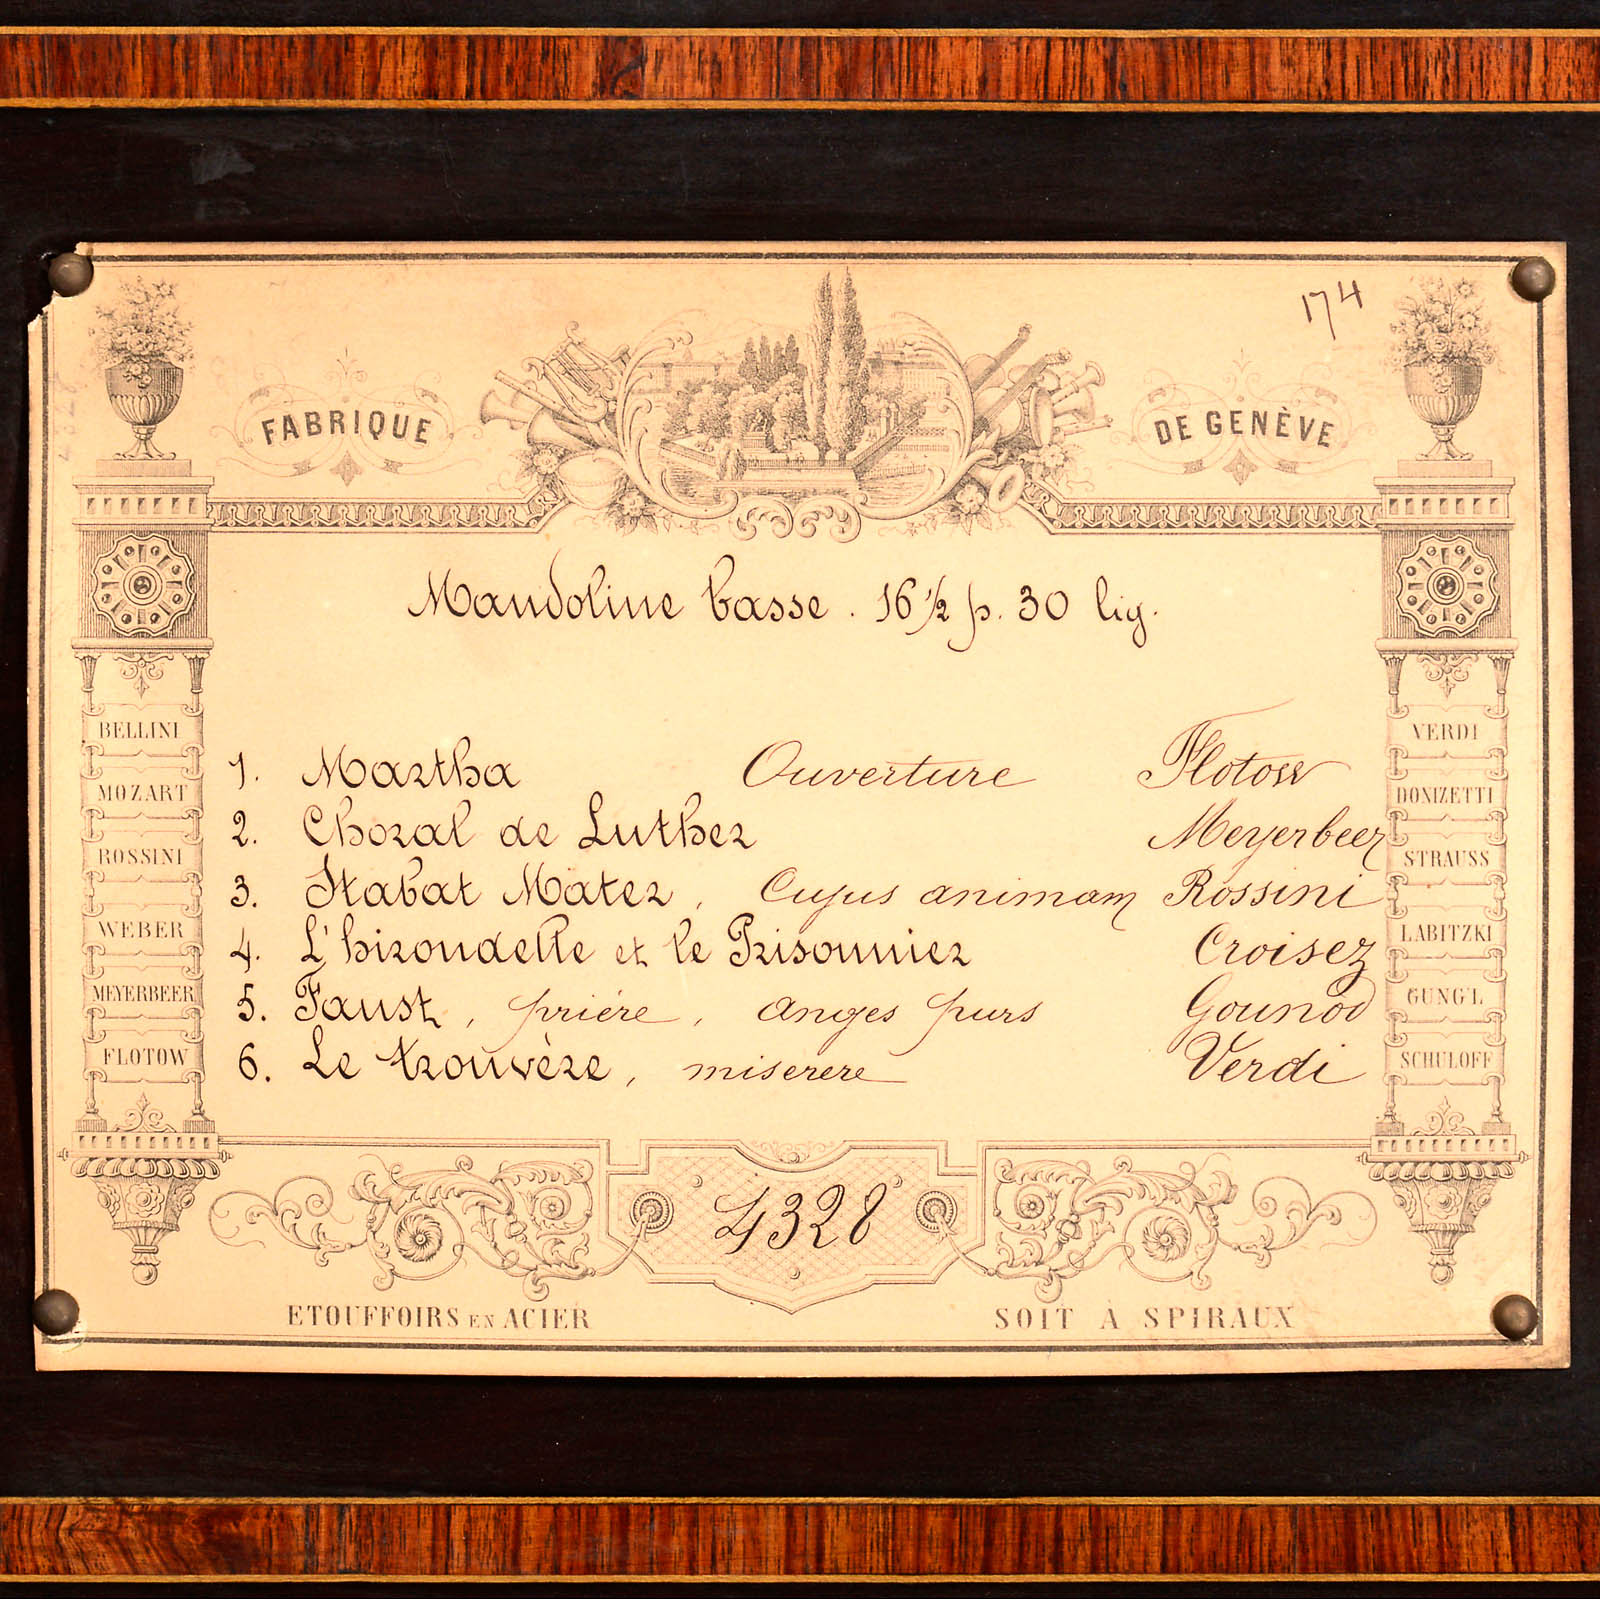 174
FABRIQUE DE GENÈVE
Mandoline basse. 16 1/2 p. 30 lig.
BELLINI
MOZART
ROSSINI
WEBER
MEYERBEER
FLOTOW
1. Martha Ouverture Flotow
2. Choral de Luther Meyerbeer
3. Stabat Mater, Cujus animam Rossini
4. L'hirondelle et le Prisonnier Croisez
5. Faust, prière, anges purs Gounod
6. Le trouvère, miserere Verdi
VERDI
DONIZETTI
STRAUSS
LABITZKI
GUNG'L
SCHULOFF
4328
ETOUFFOIRS EN ACIER SOIT À SPIRAUX